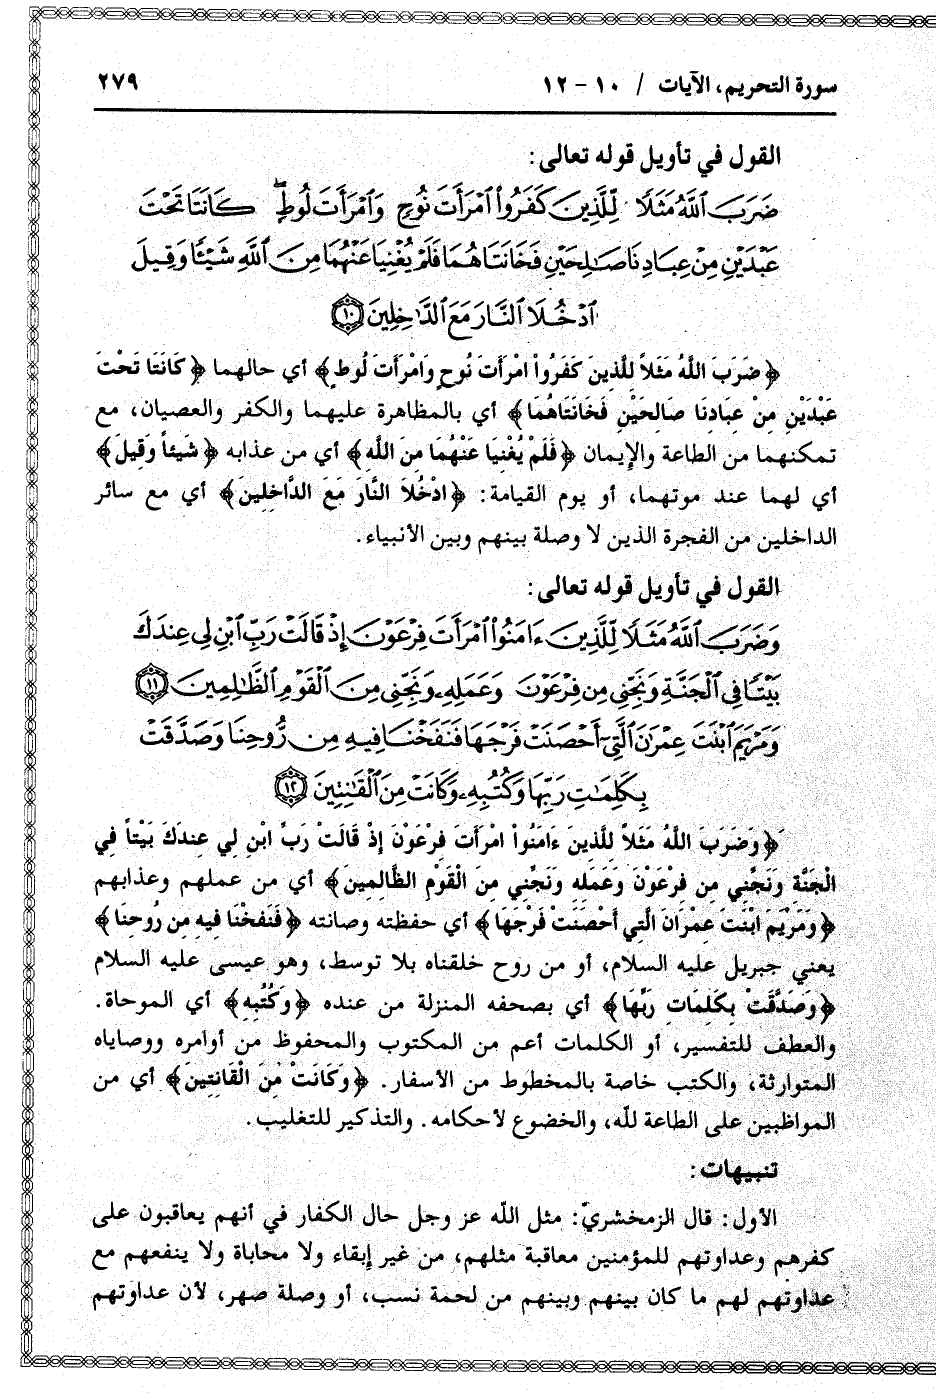 سورة التحريم، الآيات / ١٠ - ١٢ ٢٧٩
القول في تأويل قوله تعالى:
ضَرَبَ ٱللَّهُ مَثَلًا لِّلَّذِينَ كَفَرُوا۟ ٱمْرَأَتَ نُوحٍ وَٱمْرَأَتَ لُوطٍ ۖ كَانَتَا تَحْتَ
عَبْدَيْنِ مِنْ عِبَادِنَا صَـٰلِحَيْنِ فَخَانَتَاهُمَا فَلَمْ يُغْنِيَا عَنْهُمَا مِنَ ٱللَّهِ شَيْـًٔا وَقِيلَ
ٱدْخُلَا ٱلنَّارَ مَعَ ٱلدَّٰخِلِينَ ١٠
﴿ضَرَبَ اللَّهُ مَثَلاً لِلَّذِينَ كَفَرُواْ امْرَأَتَ نُوحٍ وَامْرَأَتَ لُوطٍ﴾ أي حالهما ﴿كَانَتَا تَحْتَ
عَبْدَيْنِ مِنْ عِبَادِنَا صَالِحَيْنِ فَخَانَتَاهُمَا﴾ أي بالمظاهرة عليهما والكفر والعصيان، مع
تمكنهما من الطاعة والإيمان ﴿فَلَمْ يُغْنِيَا عَنْهُمَا مِنَ اللَّهِ﴾ أي من عذابه ﴿شَيْئاً وَقِيلَ﴾
أي لهما عند موتهما، أو يوم القيامة: ﴿ادْخُلاَ النَّارَ مَعَ الدَّاخِلِينَ﴾ أي مع سائر
الداخلين من الفجرة الذين لا وصلة بينهم وبين الأنبياء.
القول في تأويل قوله تعالى:
وَضَرَبَ ٱللَّهُ مَثَلًا لِّلَّذِينَ ءَامَنُوا۟ ٱمْرَأَتَ فِرْعَوْنَ إِذْ قَالَتْ رَبِّ ٱبْنِ لِى عِندَكَ
بَيْتًا فِى ٱلْجَنَّةِ وَنَجِّنِى مِن فِرْعَوْنَ وَعَمَلِهِۦ وَنَجِّنِى مِنَ ٱلْقَوْمِ ٱلظَّـٰلِمِينَ ١١
وَمَرْيَمَ ٱبْنَتَ عِمْرَٰنَ ٱلَّتِىٓ أَحْصَنَتْ فَرْجَهَا فَنَفَخْنَا فِيهِ مِن رُّوحِنَا وَصَدَّقَتْ
بِكَلِمَـٰتِ رَبِّهَا وَكُتُبِهِۦ وَكَانَتْ مِنَ ٱلْقَـٰنِتِينَ ١٢
﴿وَضَرَبَ اللَّهُ مَثَلاً لِلَّذِينَ ءَامَنُواْ امْرَأَتَ فِرْعَوْنَ إِذْ قَالَتْ رَبِّ ابْنِ لِي عِندَكَ بَيْتاً فِي
الْجَنَّةِ وَنَجِّنِي مِن فِرْعَوْنَ وَعَمَلِهِ وَنَجِّنِي مِنَ الْقَوْمِ الظَّالِمِينَ﴾ أي من عملهم وعذابهم
﴿وَمَرْيَمَ ابْنَتَ عِمْرَانَ الَّتِي أَحْصَنَتْ فَرْجَهَا﴾ أي حفظته وصانته ﴿فَنَفَخْنَا فِيهِ مِن رُّوحِنَا﴾
يعني جبريل عليه السلام، أو من روح خلقناه بلا توسط، وهو عيسى عليه السلام
﴿وَصَدَّقَتْ بِكَلِمَاتِ رَبِّهَا﴾ أي بصحفه المنزلة من عنده ﴿وَكُتُبِهِ﴾ أي الموحاة.
والعطف للتفسير، أو الكلمات أعم من المكتوب والمحفوظ من أوامره ووصاياه
المتوارثة، والكتب خاصة بالمخطوط من الأسفار. ﴿وَكَانَتْ مِنَ الْقَانِتِينَ﴾ أي من
المواظبين على الطاعة لله، والخضوع لأحكامه. والتذكير للتغليب.
تنبيهات:
الأول: قال الزمخشريّ: مثل الله عز وجل حال الكفار في أنهم يعاقبون على
كفرهم وعداوتهم للمؤمنين معاقبة مثلهم، من غير إبقاء ولا محاباة ولا ينفعهم مع
عداوتهم لهم ما كان بينهم وبينهم من لحمة نسب، أو وصلة صهر، لأن عداوتهم